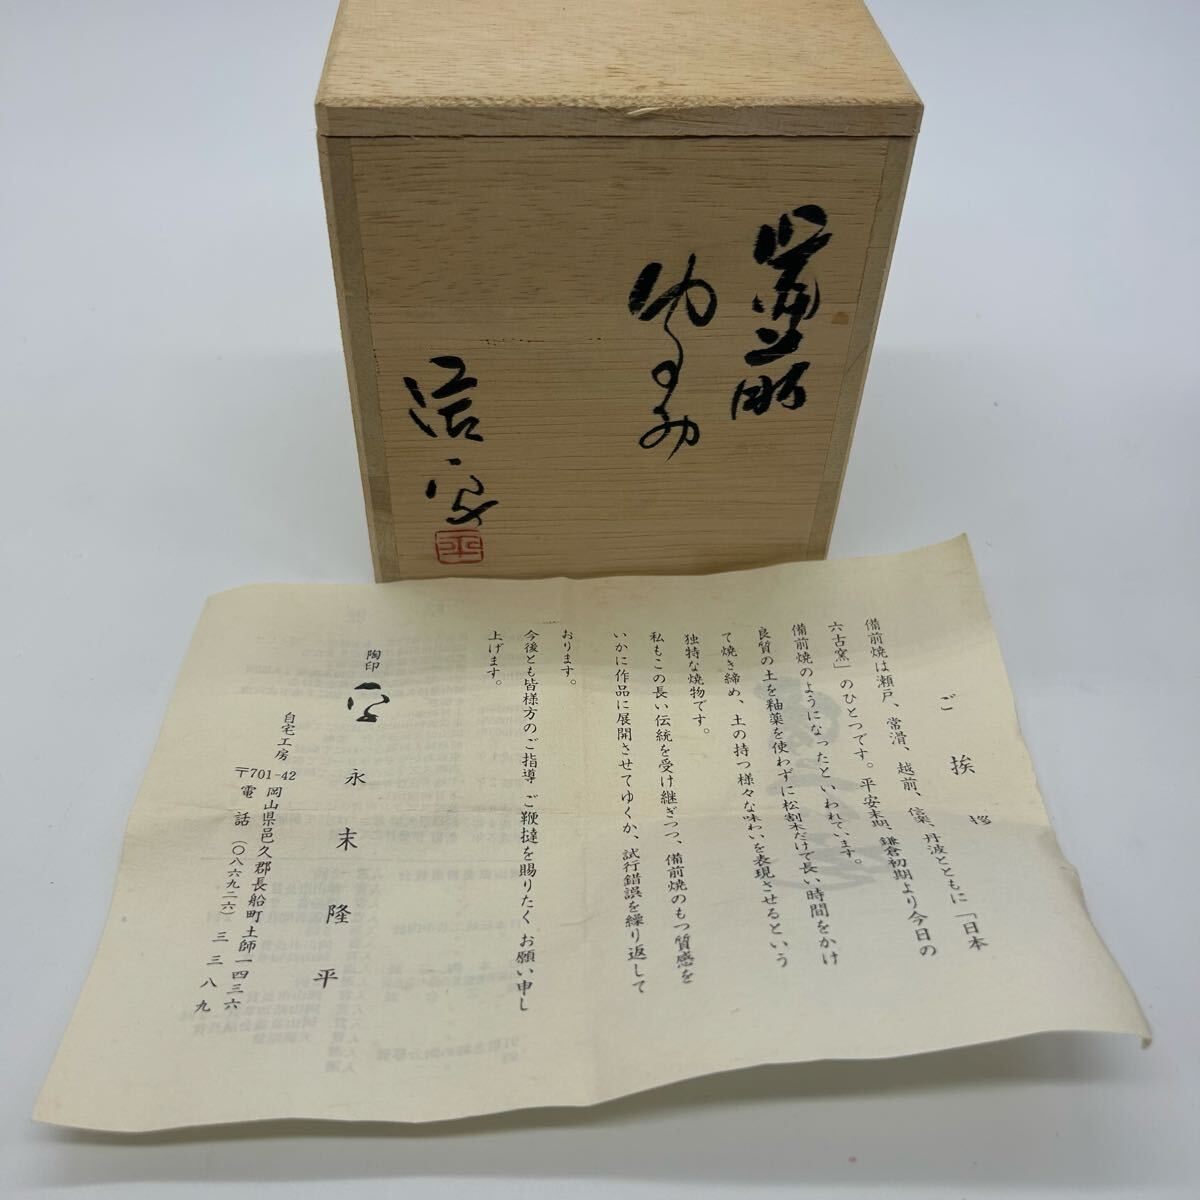 備前
ゆのみ
ご挨拶
備前焼は瀬戸、常滑、越前、信楽、丹波とともに「日本
六古窯」のひとつです。平安末期、鎌倉初期より今日の
備前焼のようになったといわれています。
良質の土を釉薬を使わずに松割木だけで長い時間をかけ
て焼き締め、土の持つ様々な味わいを表現させるという
独特な焼物です。
私もこの長い伝統を受け継ぎつつ、備前焼のもつ質感を
いかに作品に展開させてゆくか、試行錯誤を繰り返して
おります。
今後とも皆様方のご指導 ご鞭撻を賜りたく お願い申し
上げます。
陶印 永末隆平
自宅工房
〒701-42 岡山県邑久郡長船町土師一四三六
電話(〇八六九二六)三三八九